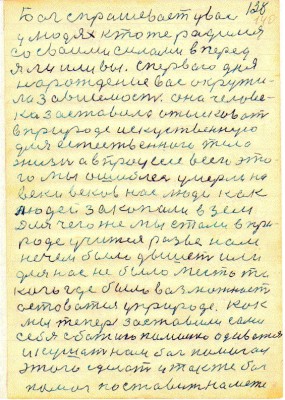 Бог спрашевает у вас 128
у людях кто те радился
со своими силами вперед
я ли или вы. с первого дня
нарождение вас окружи-
ла зависемость она челове-
ка заставила отысковат
в природе искуственную
для естественного тела
жизнь а в процессе всего это-
го мы ошиблися умерли на
веки веков нас люди как
людей закопали в зем
для чего же мы стали в при-
роде учится разве нам
нечем было дышет или
для нас не было место та
кого где было возможност
остоватся у природе. как
мы тепер заставили сами
себя сбатано пышно одеватся
и кушат нам бог помогал
этого сделат и также бог
помог поставит на месте